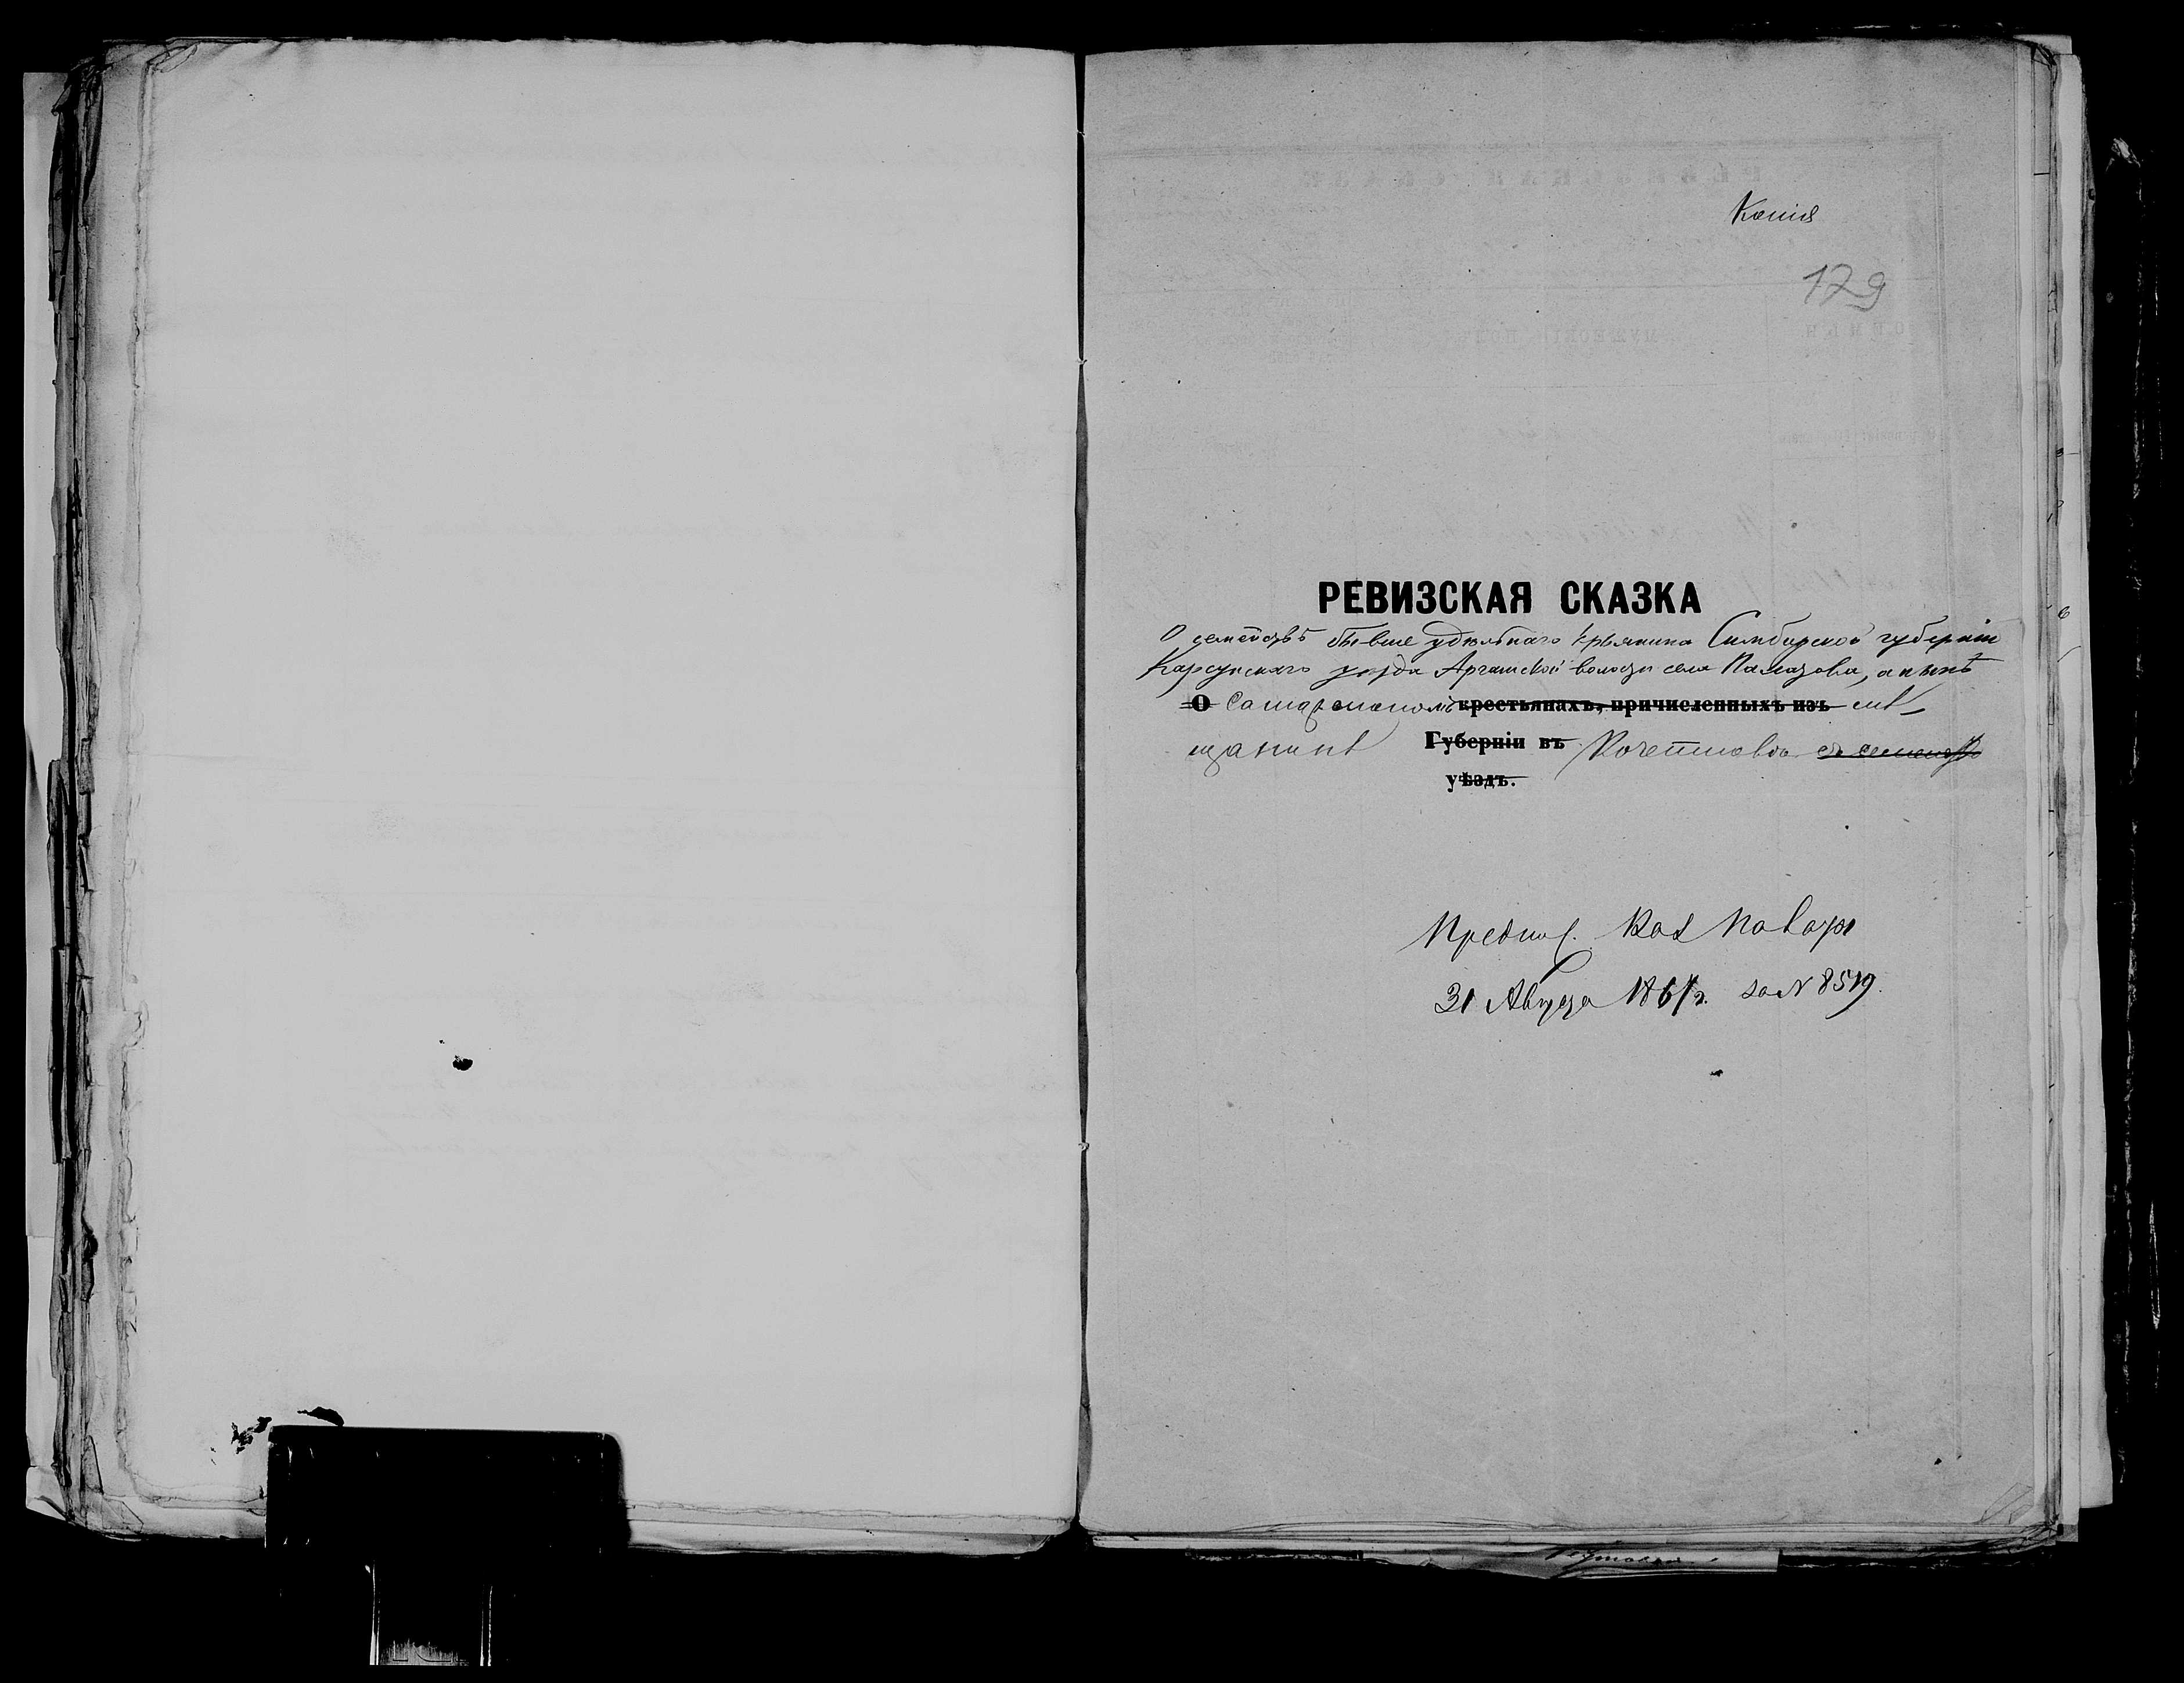 Копія
179
РЕВИЗСКАЯ СКАЗКА
О семействѣ бывше удѣльнаго крьянина Симбирской губерніи
Карсунскаго уѣзда Аргашской волости села Палазова, а нынѣ
О Самарскомъ крестьянахъ, причисленныхъ изъ мѣ-
щанинѣ Губерніи въ Кочетковѣ съ семейств
уѣздъ.
Предпис. Каз Палаты
31 Августа 1861 г. за № 8519.